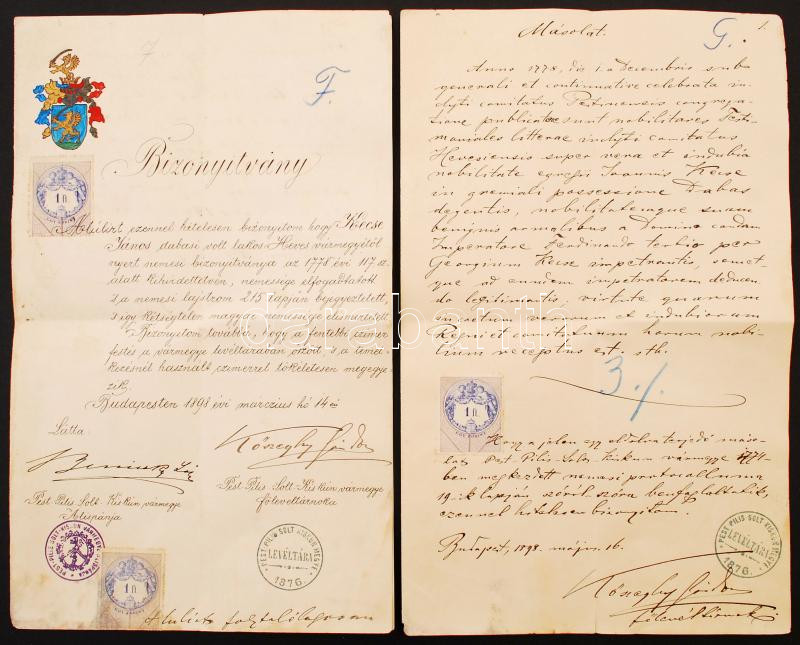 F.
Bizonyítvány
1 ft
Alulírt ezennel hitelesen bizonyítom hogy Kecse
János dabasi volt lakos Heves vármegyétől
nyert nemesi bizonyítványa az 1778 évi 117 sz.
alatt kihirdettetvén, nemessége elfogadtatott
s a nemesi lajstrom 215 lapján bejegyeztetett,
s így kétségtelen magyar nemessége elismertetett.
Bizonyítom továbbá, hogy a fentebbi címer
festés a vármegye levéltárában őrzött, s a
használt címerrel tökéletesen megegye-
zik.
Budapesten 1898 évi március hó 14 én
Látta:
Pest Pilis Solt Kiskun vármegye
Alispánja
Kőszeghy Sándor
Pest Pilis Solt Kiskun vármegye
főlevéltárnoka
PEST PILIS SOLT KISKUN MEGYE
LEVÉLTÁRA
1876.
1 ft
Másolat.
G.
1.
Anno 1778, die 1. a Decembris sub
generali et confirmative celebrata in-
clyti comitatus Pestiensis congrega-
tione publicatae sunt nobilitares Testi-
moniales litterae inclyti comitatus
Hevesiensis super vera et indubia
nobilitate egregii Joannis Kecse
in gremiali possessione Dabas
degentis, nobilitatemque suam
benignis armalibus a Domino condam
Imperatore Ferdinando tertio per
Georgium Kecse impetrantis, semet-
que ad eundem impetratorem deducen-
do legitimantis; virtute quarum
in coetum verorum et indubiorum
Regni et comitatuum horum nobi-
lium receptus est. stb.
3 ./.
1 ft
Hogy a jelen egy oldalra terjedő máso-
lat Pest Pilis Solt Kiskun vármegye
ben megkezdett nemesi protocolluma
19-ik lapján szóról szóra benfoglaltatik,
ezennel hitelesen bizonyítom.
Budapest, 1898. május 16.
PEST PILIS SOLT KISKUN MEGYE
LEVÉLTÁRA
1876.
Kőszeghy Sándor
főlevéltárnok
darabanth